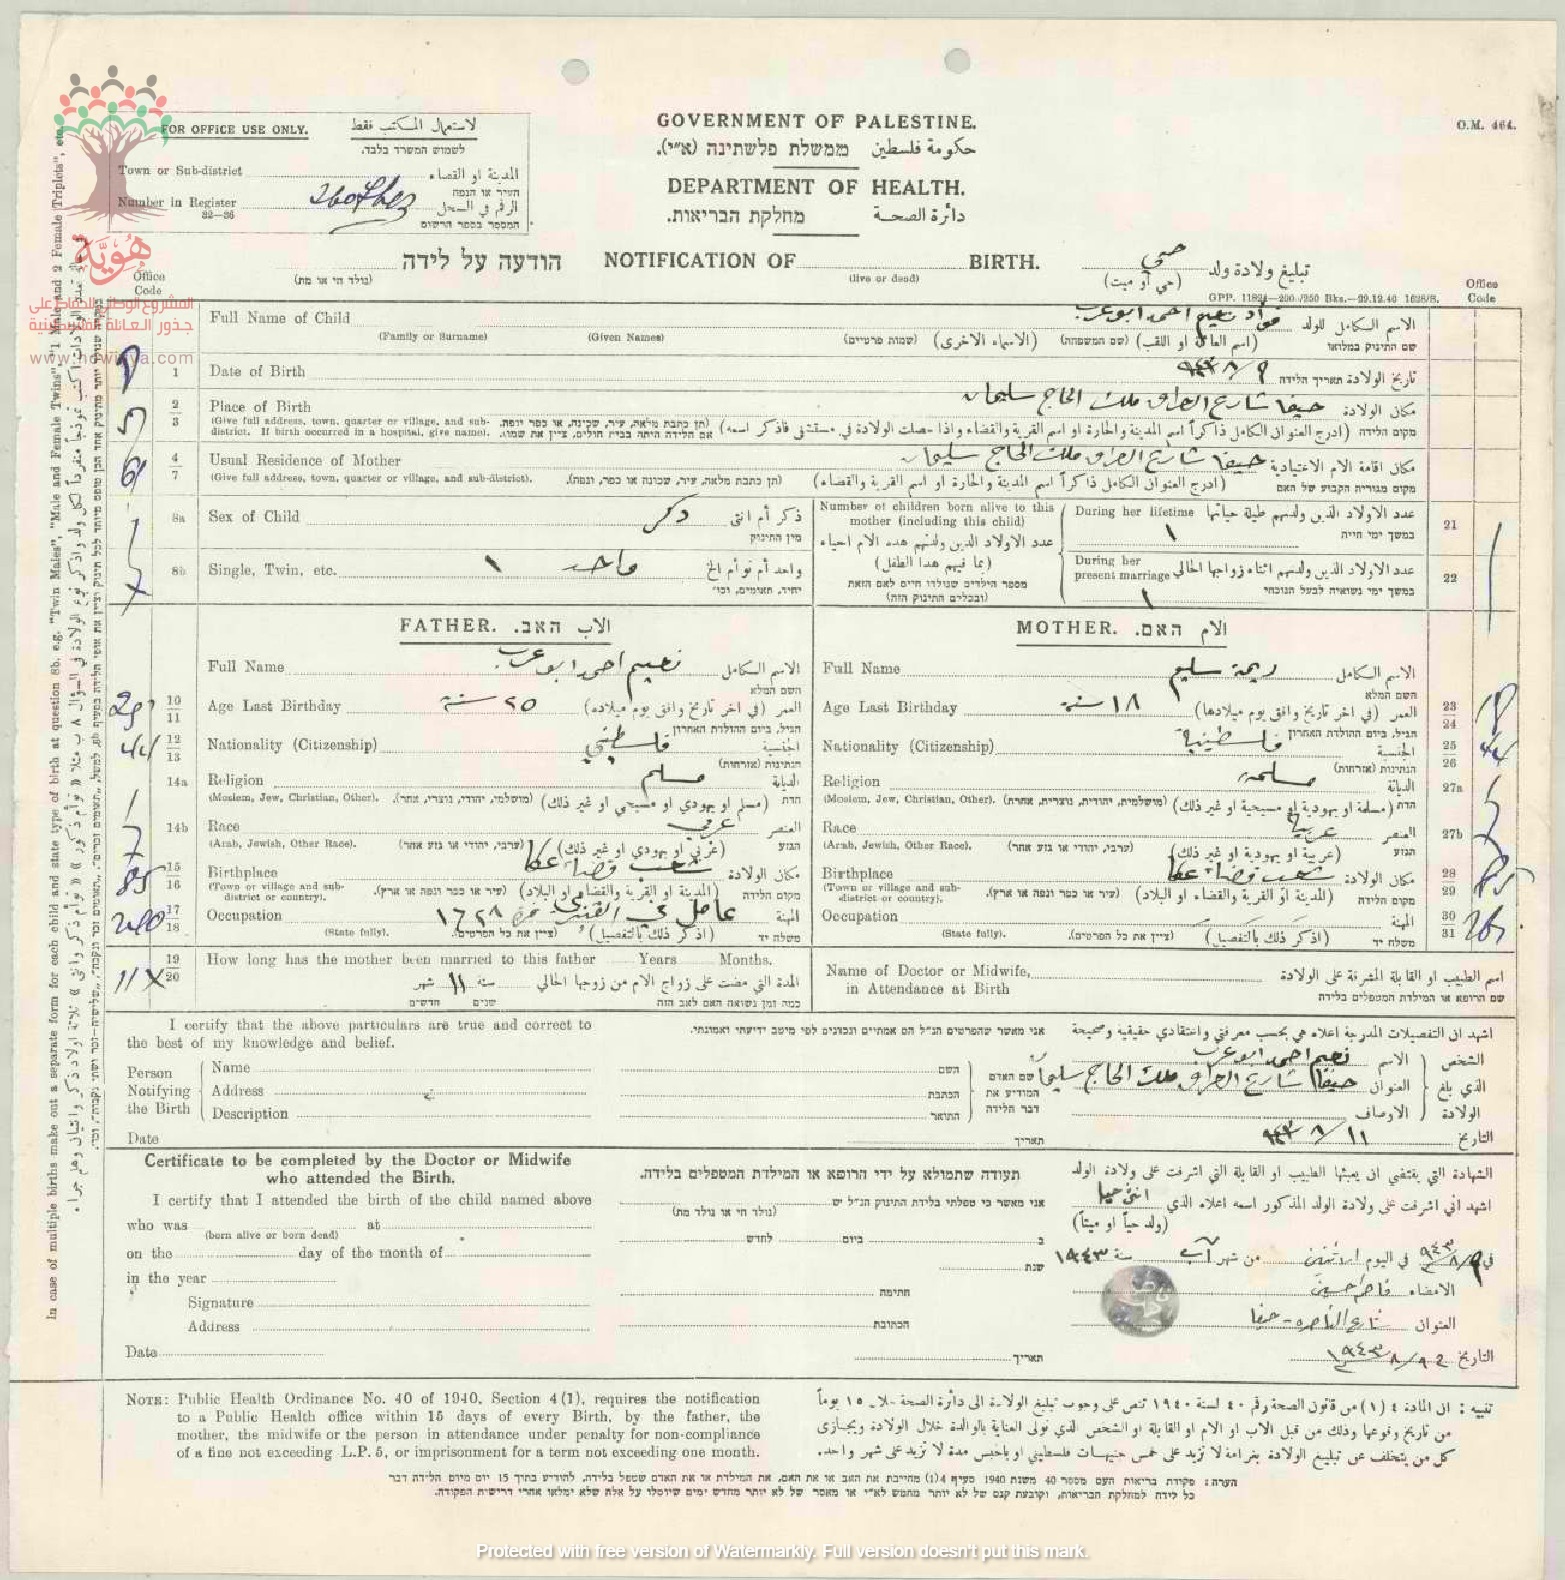 FOR OFFICE USE ONLY. لاستعمال المكتب فقط
לשמוש המשרד בלבד.
Town or Sub-district المدينة او القضاء
העיר או הנפה
Number in Register الرقم في السجل
32—36 המספר בספר הרשום
GOVERNMENT OF PALESTINE.
ממשלת פלשתינה (א״י). حكومة فلسطين
DEPARTMENT OF HEALTH.
מחלקת הבריאות. دائرة الصحة
O.M. 464.
هُويَّة
المشروع الوطني للحفاظ على
جذور العائلة الفلسطينية
www.howiyya.com
הודעה על לידה NOTIFICATION OF BIRTH. تبليغ ولادة ولد حي
(נולד חי או מת) (live or dead) (حي او ميت)
GPP. 11824—200./250 Bks.—29.12.40 1626/S.
Office Code
Office Code
Full Name of Child فؤاد نعيم احمد ابو عرب الاسم الكامل للولد
(Family or Surname) (Given Names) (שמות פרטיים) (الاسماء الاخرى) (שם המשפחה) (اسم العائلة او اللقب) שם התינוק במלואו
1 Date of Birth ٩/٨/٩٤٣ تاريخ الولادة תאריך הלידה
2/3 Place of Birth حيفا شارع العراق ملك الحاج سليمان مكان الولادة
(Give full address, town, quarter or village, and sub-district. If birth occurred in a hospital, give name). (תן כתבת מלאה, עיר, שכונה, או כפר ונפה. אם הלידה היתה בבית חולים, ציין את שמו. (ادرج العنوان الكامل ذاكراً اسم المدينة والحارة او اسم القرية والقضاء واذا حصلت الولادة في مستشفى فاذكر اسمه) מקום הלידה
4/7 Usual Residence of Mother حيفا شارع العراق ملك الحاج سليمان مكان اقامة الام الاعتيادية
(Give full address, town, quarter or village, and sub-district). (תן כתבת מלאה, עיר, שכונה או כפר, ונפה). (ادرج العنوان الكامل ذاكراً اسم المدينة والحارة او اسم القرية والقضاء) מקום מגוריה הקבוע של האם
8a Sex of Child ذكر ذكر أم انثى
מין התינוק
8b Single, Twin, etc. واحد ١ واحد أم توأم الخ
יחיד, תאומים, וכו׳
Number of children born alive to this mother (including this child)
عدد الاولاد الذين ولدتهم هذه الام احياء (بما فيهم هذا الطفل)
מספר הילדים שנולדו חיים לאם הזאת (ובכללם התינוק הזה)
During her lifetime عدد الاولاد الذين ولدتهم طيلة حياتها 21
١ במשך ימי חייה
During her present marriage عدد الاولاد الذين ولدتهم اثناء زواجها الحالي 22
١ במשך ימי נשואיה לבעל הנוכחי
FATHER. האב. الاب
Full Name نعيم احمد ابو عرب الاسم الكامل
השם המלא
10/11 Age Last Birthday ٢٥ سنة العمر (في اخر تاريخ وافق يوم ميلاده)
הגיל, ביום ההולדת האחרון
12/13 Nationality (Citizenship) فلسطيني الجنسية
הנתינות (אזרחות)
14a Religion مسلم الديانة
(Moslem, Jew, Christian, Other). (מושלמי, יהודי, נוצרי, אחר). (مسلم او يهودي او مسيحي او غير ذلك) הדת
14b Race عربي العنصر
(Arab, Jewish, Other Race). (ערבי, יהודי או גזע אחר) (عربي او يهودي او غير ذلك) הגזע
15/16 Birthplace شعب قضاء عكا مكان الولادة
(Town or village and sub-district or country). (עיר או כפר ונפה או ארץ). (المدينة او القرية والقضاء او البلاد) מקום הלידה
17/18 Occupation المهنة
(State fully). (ציין את כל הפרטים). (اذكر ذلك بالتفصيل) משלח יד
19/20 How long has the mother been married to this father Years Months.
المدة التي مضت على زواج الام من زوجها الحالي سنة ١١ شهر
כמה זמן נשואה האם לאב הזה שנים חדשים
MOTHER. האם. الام
Full Name ريمة سليم الاسم الكامل
השם המלא
Age Last Birthday ١٨ سنة العمر (في اخر تاريخ وافق يوم ميلادها) 23/24
הגיל, ביום ההולדת האחרון
Nationality (Citizenship) فلسطينية الجنسية 25/26
הנתינות (אזרחות)
Religion مسلمة الديانة 27a
(Moslem, Jew, Christian, Other). (מושלמית, יהודית, נוצרית, אחרת) (مسلمة او يهودية او مسيحية او غير ذلك) הדת
Race عربية العنصر 27b
(Arab, Jewish, Other Race). (ערבי, יהודי או גזע אחר) (عربية او يهودية او غير ذلك) הגזע
Birthplace شعب قضاء عكا مكان الولادة 28/29
(Town or village and sub-district or country). (עיר או כפר ונפה או ארץ). (المدينة او القرية والقضاء او البلاد) מקום הלידה
Occupation المهنة 30/31
(State fully). (ציין את כל הפרטים). (اذكر ذلك بالتفصيل) משלח יד
Name of Doctor or Midwife, in Attendance at Birth اسم الطبيب او القابلة المشرفة على الولادة
שם הרופא או המילדת המטפלים בלידה
I certify that the above particulars are true and correct to the best of my knowledge and belief.
אני מאשר שהפרטים הנ״ל הם אמתיים ונכונים לפי מיטב ידיעתי ואמונתי.
اشهد ان التفصيلات المدرجة اعلاه هي بحسب معرفتي واعتقادي حقيقية وصحيحة
Person Notifying the Birth
Name השם نعيم احمد ابو عرب الاسم
Address הכתבת حيفا شارع العراق ملك الحاج سليمان العنوان
Description התואר الاوصاف
שם האדם המודיע את דבר הלידה
الشخص الذي بلغ الولادة
Date תאריך ١١/٨/٩٤٣ التاريخ
Certificate to be completed by the Doctor or Midwife who attended the Birth.
I certify that I attended the birth of the child named above
who was at
(born alive or born dead)
on the day of the month of
in the year
Signature
Address
Date
תעודה שתמולא על ידי הרופא או המילדת המטפלים בלידה.
אני מאשר כי טפלתי בלידת התינוק הנ״ל יש
(נולד חי או נולד מת)
ב ביום לחדש
שנת
חתימה
הכתובת
תאריך
الشهادة التي يقتضي ان يعبئها الطبيب او القابلة التي اشرفت على ولادة الولد
اشهد اني اشرفت على ولادة الولد المذكور اسمه اعلاه الذي
(ولد حياً او ميتاً)
في ٩/٨/٩٤٣ في اليوم من شهر آب سنة ١٩٤٣
الامضاء فاطمة حسين
العنوان شارع الناصرة - حيفا
التاريخ
NOTE: Public Health Ordinance No. 40 of 1940, Section 4(1), requires the notification
to a Public Health office within 15 days of every Birth, by the father, the
mother, the midwife or the person in attendance under penalty for non-compliance
of a fine not exceeding L.P.5, or imprisonment for a term not exceeding one month.
تنبيه : ان المادة ٤ (١) من قانون الصحة رقم ٤٠ لسنة ١٩٤٠ تنص على وجوب تبليغ الولادة الى دائرة الصحة خلال ١٥ يوماً
من تاريخ وقوعها وذلك من قبل الاب او الام او القابلة او الشخص الذي تولى العناية بالوالدة خلال الولادة ويجازى
كل من يتخلف عن تبليغ الولادة بغرامة لا تزيد على خمس جنيهات فلسطيني او بالحبس مدة لا تزيد على شهر واحد.
הערה: פקודת בריאות העם מספר 40 משנת 1940 סעיף 4(1) מחייבת את האב או את האם, את המילדת או את האדם שטפל בלידה, להודיע בתוך 15 יום מיום הלידה דבר
כל לידה למחלקת הבריאות, וקובעת קנס של לא יותר מחמש לא״י או מאסר של לא יותר מחדש ימים שיוטלו על אלה שלא ימלאו אחרי דרישות הפקודה.
In case of multiple births make out a separate form for each child and state type of birth at question 8b, e.g. "Twin Males", "Male and Female Twins", "1 Male and 2 Female Triplets", etc.
Protected with free version of Watermarkly. Full version doesn't put this mark.